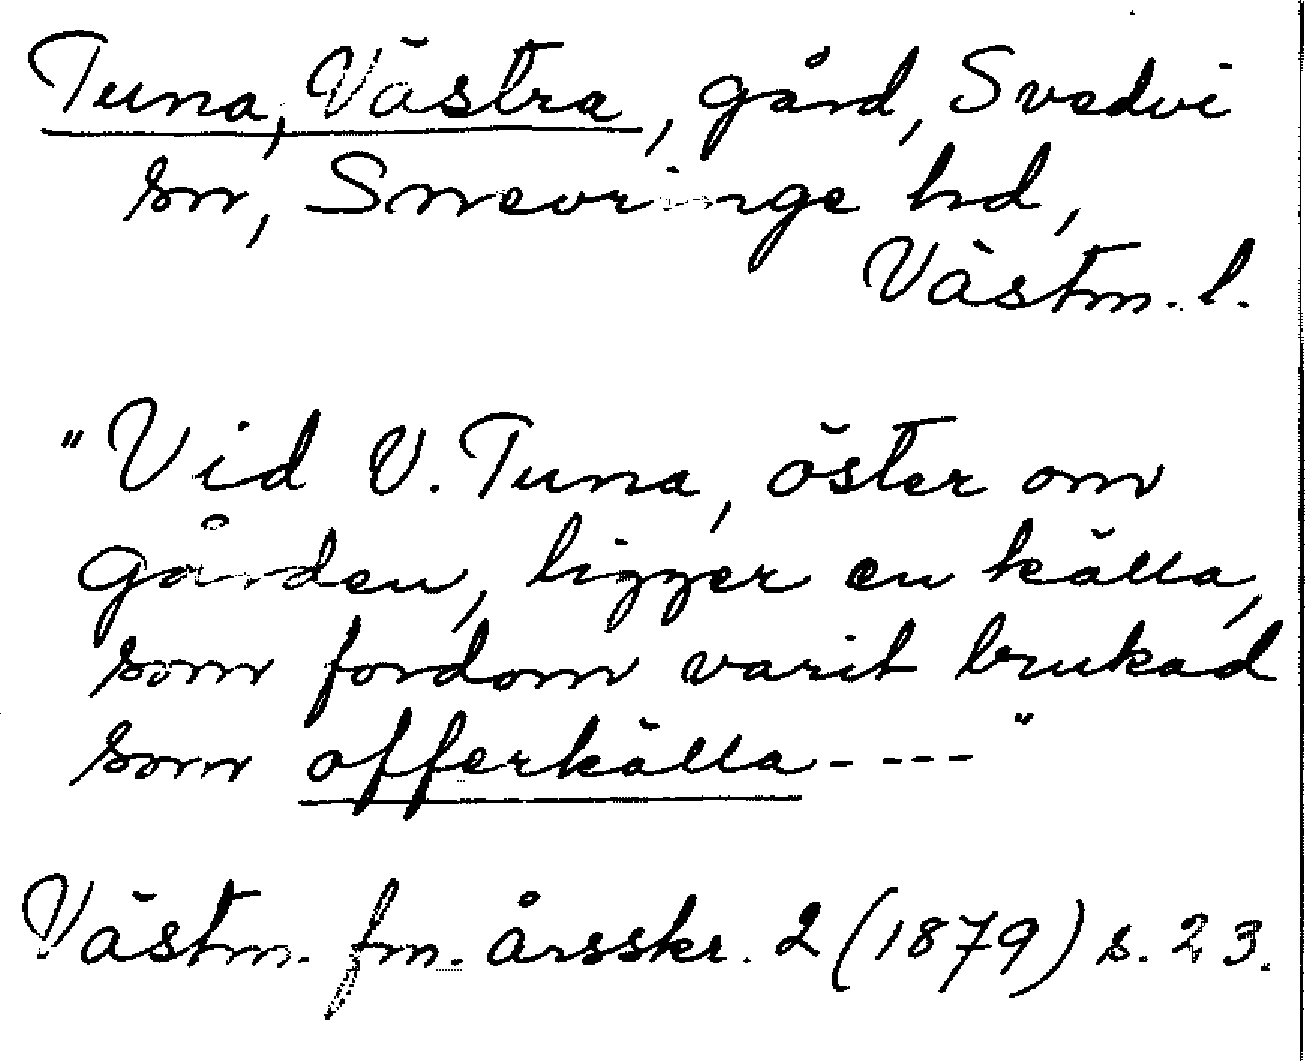 Tuna, Västra, gård, Svedvi
sn, Snevringe hd,
Västm. l.
"Vid V. Tuna, öster om
gården, ligger en källa,
som fordom varit brukad
som offerkälla - - - -"
Västm. fm. årsskr. 2 (1879) s. 23.